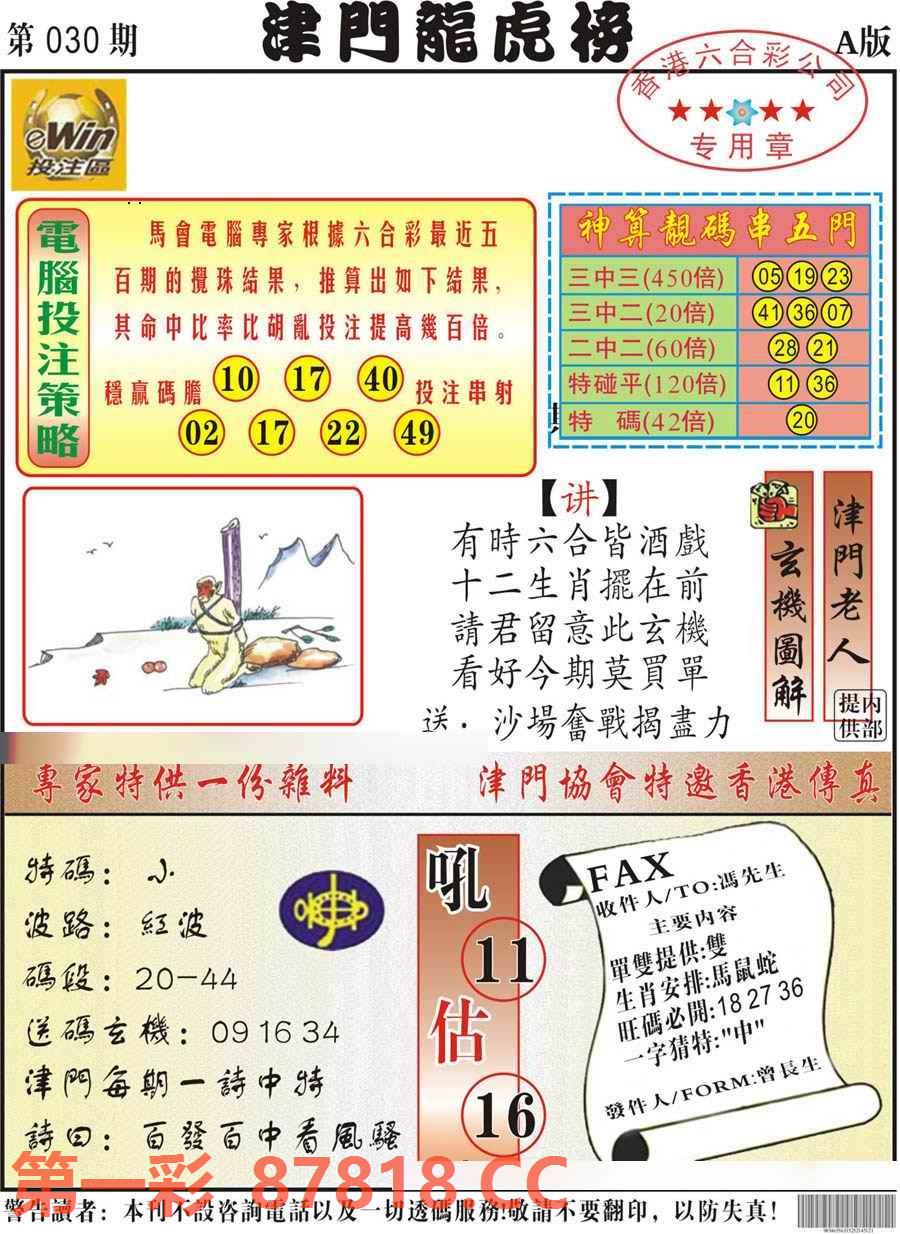 第 030 期
津門龍虎榜
A版
香港六合彩公司
专用章
eWin
投注區
電腦投注策略
馬會電腦專家根據六合彩最近五
百期的攪珠結果，推算出如下結果，
其命中比率比胡亂投注提高幾百倍。
穩贏碼膽 10 17 40 投注串射
02 17 22 49
神算靚碼串五門
三中三(450倍) 05 19 23
三中二(20倍) 41 36 07
二中二(60倍) 28 21
特碰平(120倍) 11 36
特 碼(42倍) 20
【讲】
有時六合皆酒戲
十二生肖擺在前
請君留意此玄機
看好今期莫買單
送．沙場奮戰揭盡力
玄機圖解
津門老人
内部提供
專家特供一份雜料
津門協會特邀香港傳真
特碼：小
波路：紅波
碼段：20-44
送碼玄機：09 16 34
津門每期一詩中特
詩曰：百發百中看風騷
吼
11
估
16
FAX
收件人/TO:馮先生
主要内容
單雙提供:雙
生肖安排:馬鼠蛇
旺碼必開:18 27 36
一字猜特:"中"
發件人/FORM:曾長生
第一彩 87818.CC
警告讀者：本刊不設咨詢電話以及一切透碼服務!敬請不要翻印，以防失真！